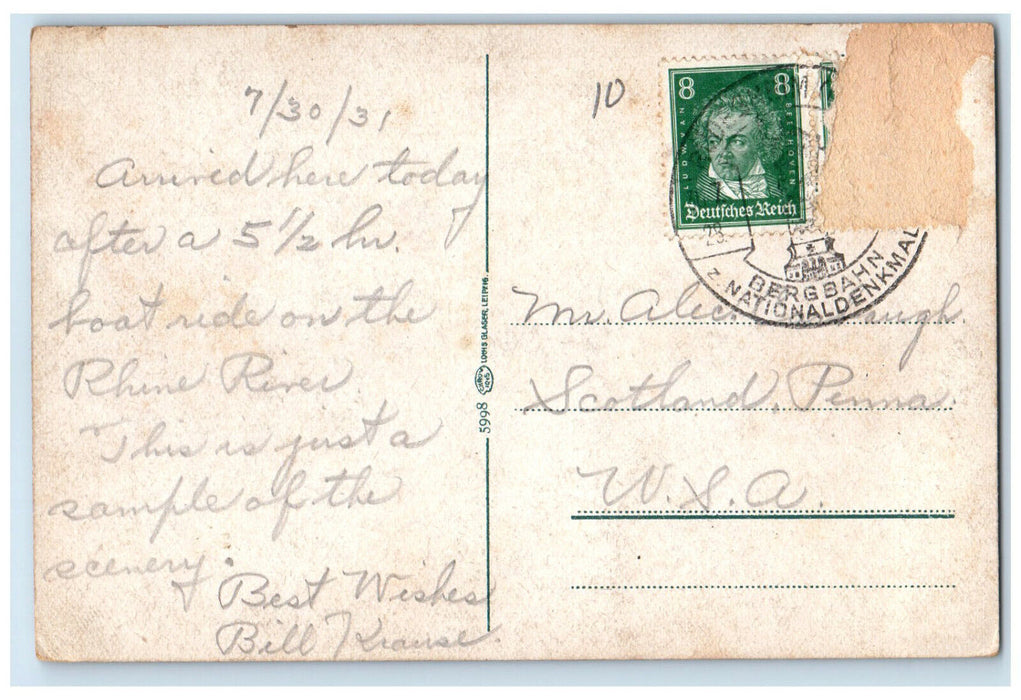 7/30/31
Arrived here today
after a 5 1/2 hr.
boat ride on the
Rhine River
This is just a
sample of the
scenery.
Best Wishes
Bill Krause
5998
LOUIS GLASER, LEIPZIG.
10
8 8
LUDWIG VAN BEETHOVEN
Deutsches Reich
BERGBAHN
z. NATIONALDENKMAL
Mr. Alec
Scotland, Penna.
U.S.A.